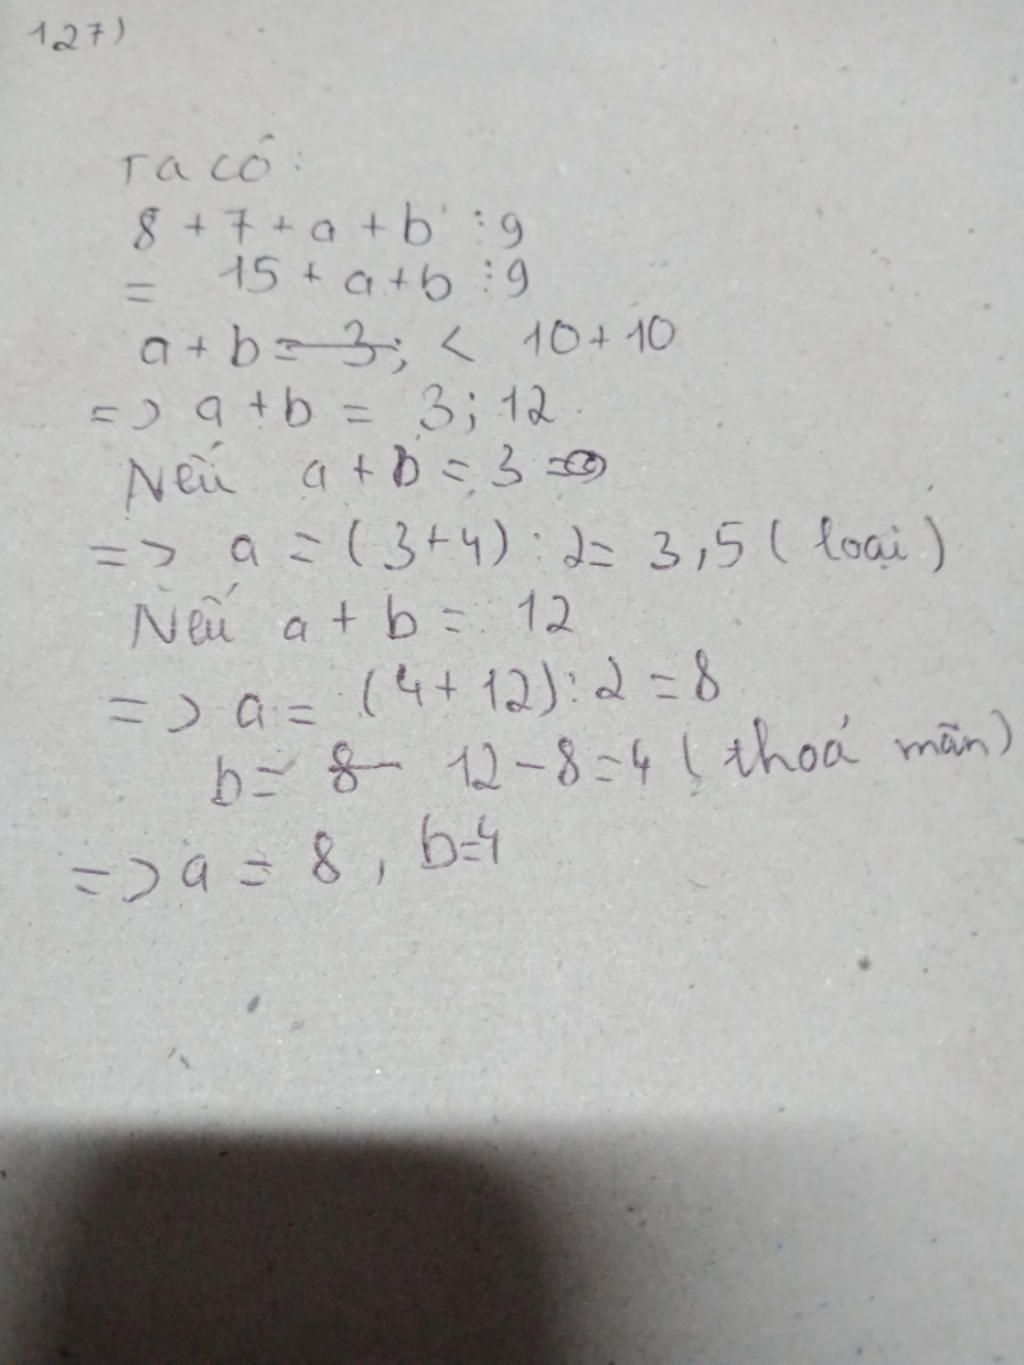 127)
Ta có:
8 + 7 + a + b ⋮ 9
= 15 + a + b ⋮ 9
a + b = 3; < 10 + 10
=> a + b = 3; 12
Nếu a + b = 3
=> a = (3 + 4) : 2 = 3,5 (loại)
Nếu a + b = 12
=> a = (4 + 12) : 2 = 8
b = 8 - 12 - 8 = 4 (thoả mãn)
=> a = 8, b = 4